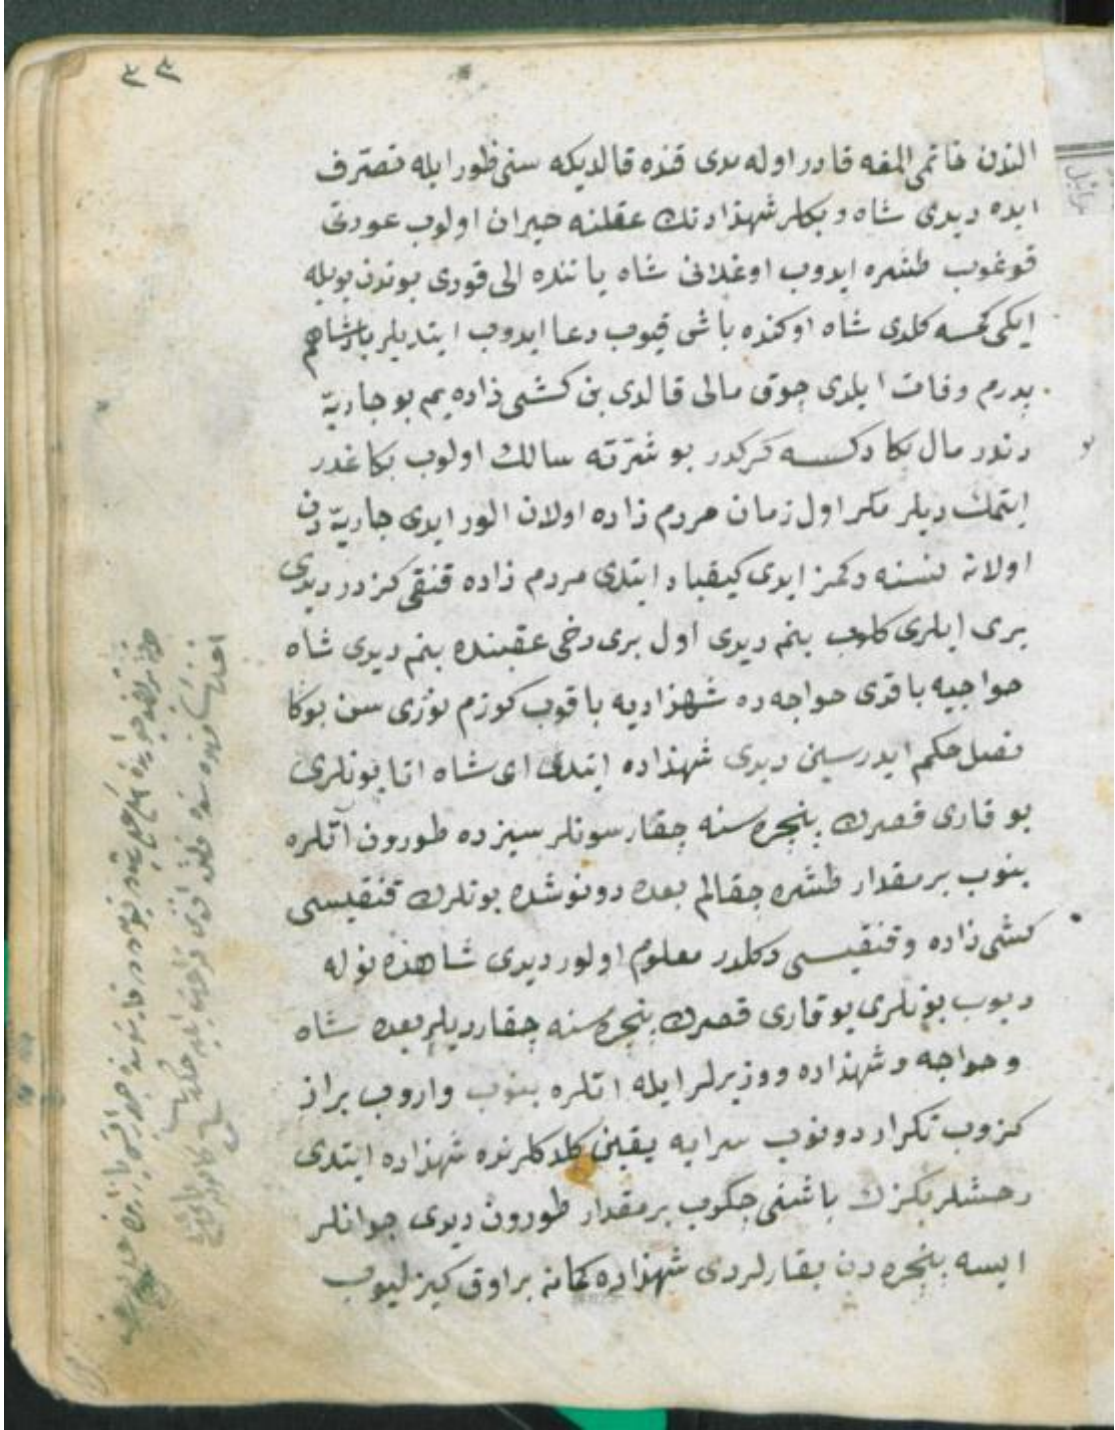 ٣٣
الندن خاتمی المغه قادر اوله مدی قنده قالدیکه سنی ظور ایله تصرف
ایده دیدی شاه و بکلر شهزادنك عقلنه حیران اولوب عورتی
قوغوب طشره ایدوب اوغلانی شاه یاننده الی قودی بوندن بویله
ایکی کمسه کلدی شاه اوکنده باش قیوب دعا ایدوب ایتدیلر پادشاهم
پدرم وفات ایلدی چوق مالی قالدی بن کشی زاده یم بو جاریه
دندر مال بکا دکسه کرکدر بو شرته سالك اولوب بکا غدر
ایتمك دیلر مکر اول زمان مردم زاده اولان الور ایدی جاریه دن
اولانه نسنه دکمز ایدی کیقباد ایتدی مردم زاده قنقی کزدر دیدی
بری ایلری کلوب بنم دیدی اول بری دخی عقبنده بنم دیدی شاه
حواجیه باقدی حواجه ده شهزادیه باقوب کوزم نوری سن بوکا
نصل حکم ایدرسین دیدی شهزاده ایتدی ای شاه اتا بونلری
یوقاری قصرك پنجره سنه چقارسونلر سیز ده طورون آتلره
بنوب بر مقدار طشره چقالم بعده دونوشده بونلرك قنقیسی
کشی زاده و قنقیسی دکلدر معلوم اولور دیدی شاهده نوله
دیوب بونلری یوقاری قصرك پنجره سنه چقاردیلر بعده شاه
و حواجه و شهزاده و وزیرلر ایله اتلره بنوب واروب براز
کزوب تکرار دونوب سرایه یقین کلدکلرنده شهزاده ایتدی
رحشلریکزك باشنی چکوب بر مقدار طورون دیدی جوانلر
ایسه پنجره دن بقارلردی شهزاده کمانه بر اوق کیزلیوب